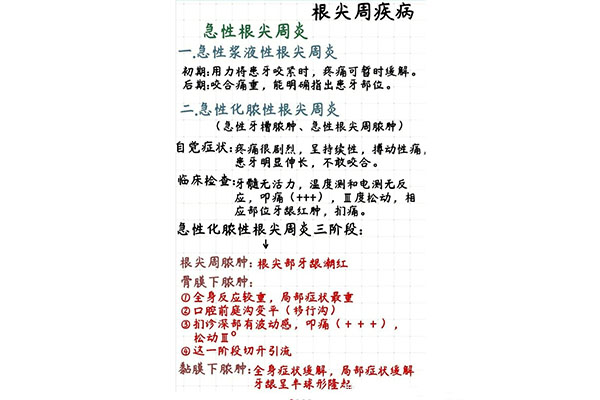 根尖周疾病
急性根尖周炎
一.急性浆液性根尖周炎
初期:用力将患牙咬紧时，疼痛可暂时缓解。
后期:咬合痛重，能明确指出患牙部位。
二.急性化脓性根尖周炎
（急性牙槽脓肿、急性根尖周脓肿）
自觉症状:疼痛很剧烈，呈持续性，搏动性痛，
患牙明显伸长，不敢咬合。
临床检查:牙髓无活力，温度测和电测无反
应，叩痛(+++)，Ⅲ度松动，相
应部位牙龈红肿，扪痛。
急性化脓性根尖周炎三阶段:
↓
根尖周脓肿:根尖部牙龈潮红
骨膜下脓肿:
①全身反应较重，局部症状最重
②口腔前庭沟变平（移行沟）
③扪诊深部有波动感，叩痛（+++），
松动Ⅲ°
④这一阶段切开引流
黏膜下脓肿:全身症状缓解，局部症状缓解
牙龈呈半球形隆起